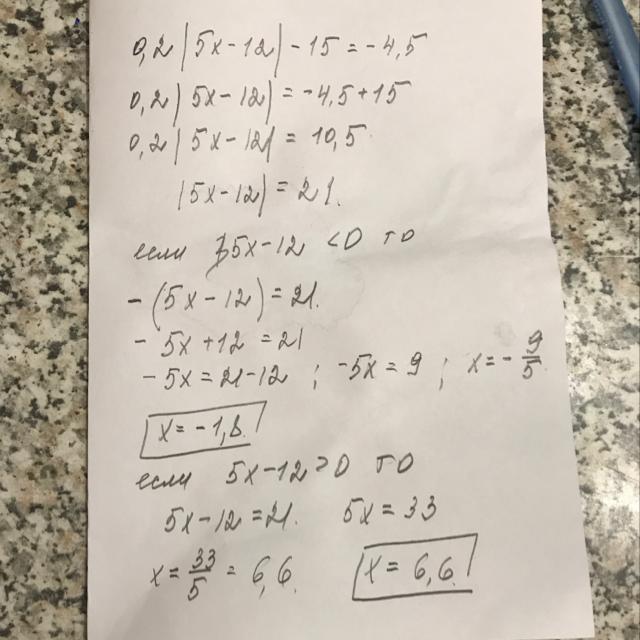 0,2|5x-12|-15=-4,5
0,2|5x-12|=-4,5+15
0,2|5x-12|=10,5
|5x-12|=21.
если 5x-12<0 то
-(5x-12)=21.
-5x+12=21
-5x=21-12 ; -5x=9 ; x=-9/5
x=-1,8
если 5x-12>0 то
5x-12=21. 5x=33
x=33/5=6,6. x=6,6.